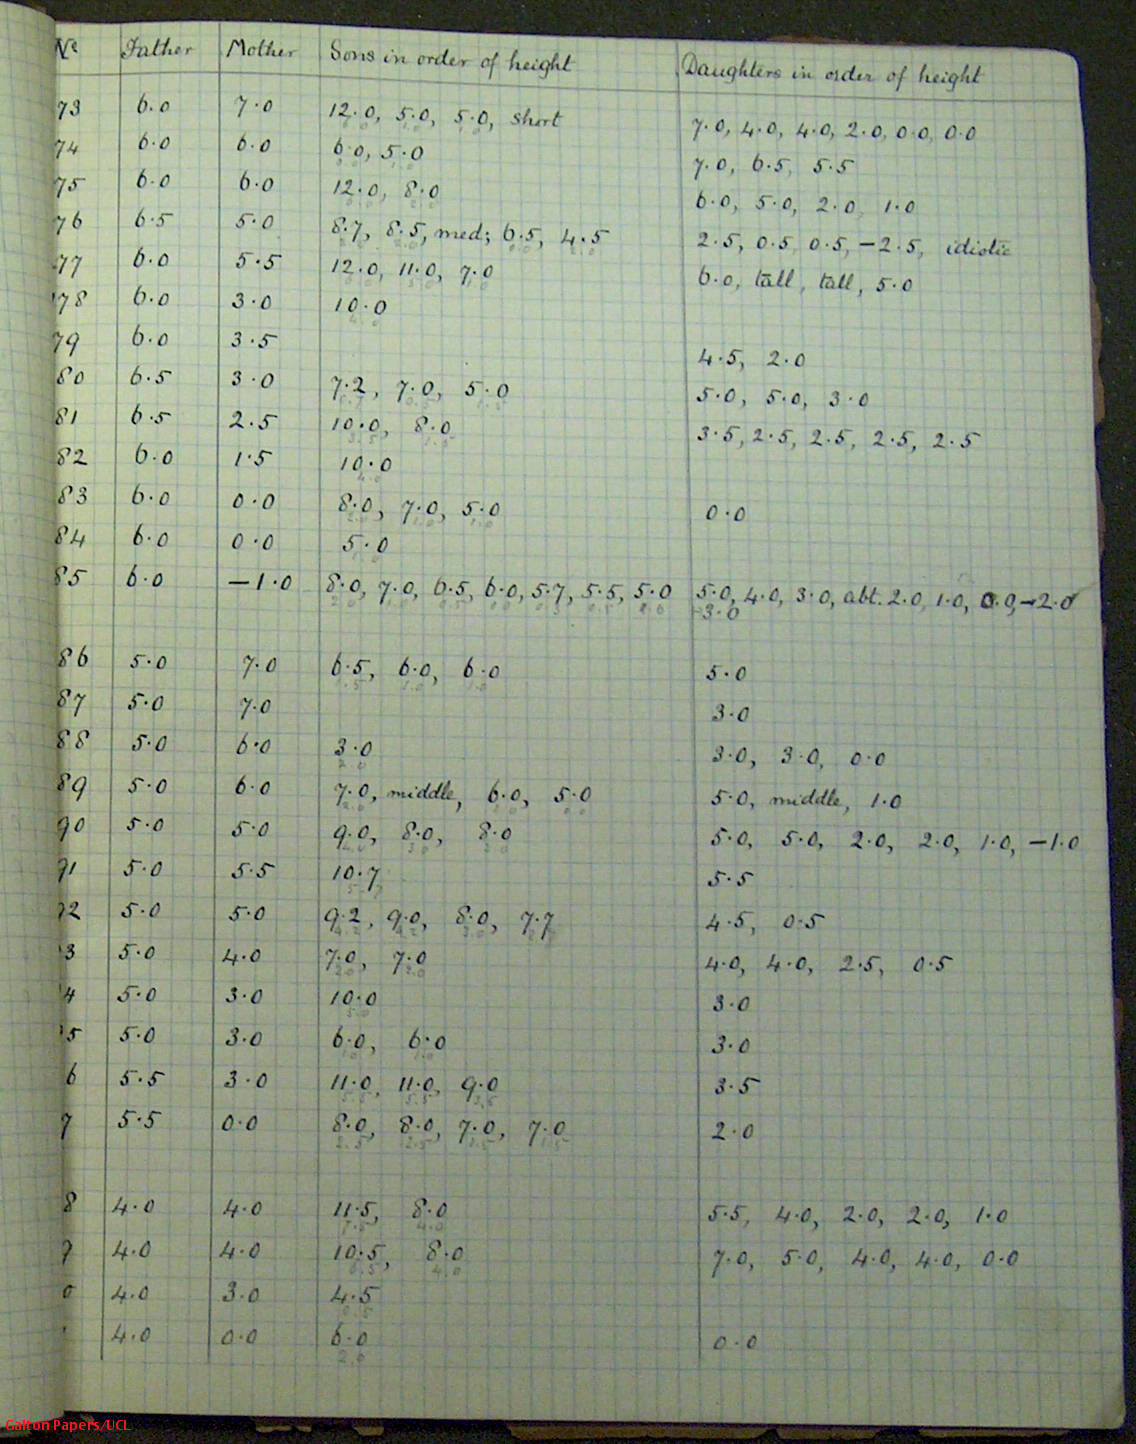 No Father Mother Sons in order of height Daughters in order of height
73 6.0 7.0 12.0, 5.0, 5.0, short 7.0, 4.0, 4.0, 2.0, 0.0, 0.0
74 6.0 6.0 6.0, 5.0 7.0, 6.5, 5.5
75 6.0 6.0 12.0, 8.0 6.0, 5.0, 2.0, 1.0
76 6.5 5.0 8.7, 8.5, med; 6.5, 4.5 2.5, 0.5, 0.5, -2.5, idiotic
77 6.0 5.5 12.0, 11.0, 7.0 6.0, tall, tall, 5.0
78 6.0 3.0 10.0
79 6.0 3.5 4.5, 2.0
80 6.5 3.0 7.2, 7.0, 5.0 5.0, 5.0, 3.0
81 6.5 2.5 10.0, 8.0 3.5, 2.5, 2.5, 2.5, 2.5
82 6.0 1.5 10.0
83 6.0 0.0 8.0, 7.0, 5.0 0.0
84 6.0 0.0 5.0
85 6.0 -1.0 8.0, 7.0, 6.5, 6.0, 5.7, 5.5, 5.0 5.0, 4.0, 3.0, abt. 2.0, 1.0, 0.0, -2.0
-3.0
86 5.0 7.0 6.5, 6.0, 6.0 5.0
87 5.0 7.0 3.0
88 5.0 6.0 3.0 3.0, 3.0, 0.0
89 5.0 6.0 7.0, middle, 6.0, 5.0 5.0, middle, 1.0
90 5.0 5.0 9.0, 8.0, 8.0 5.0, 5.0, 2.0, 2.0, 1.0, -1.0
91 5.0 5.5 10.7 5.5
92 5.0 5.0 9.2, 9.0, 8.0, 7.7 4.5, 0.5
3 5.0 4.0 7.0, 7.0 4.0, 4.0, 2.5, 0.5
4 5.0 3.0 10.0 3.0
5 5.0 3.0 6.0, 6.0 3.0
6 5.5 3.0 11.0, 11.0, 9.0 3.5
7 5.5 0.0 8.0, 8.0, 7.0, 7.0 2.0
8 4.0 4.0 11.5, 8.0 5.5, 4.0, 2.0, 2.0, 1.0
9 4.0 4.0 10.5, 8.0 7.0, 5.0, 4.0, 4.0, 0.0
0 4.0 3.0 4.5
4.0 0.0 6.0 0.0
Galton Papers/UCL